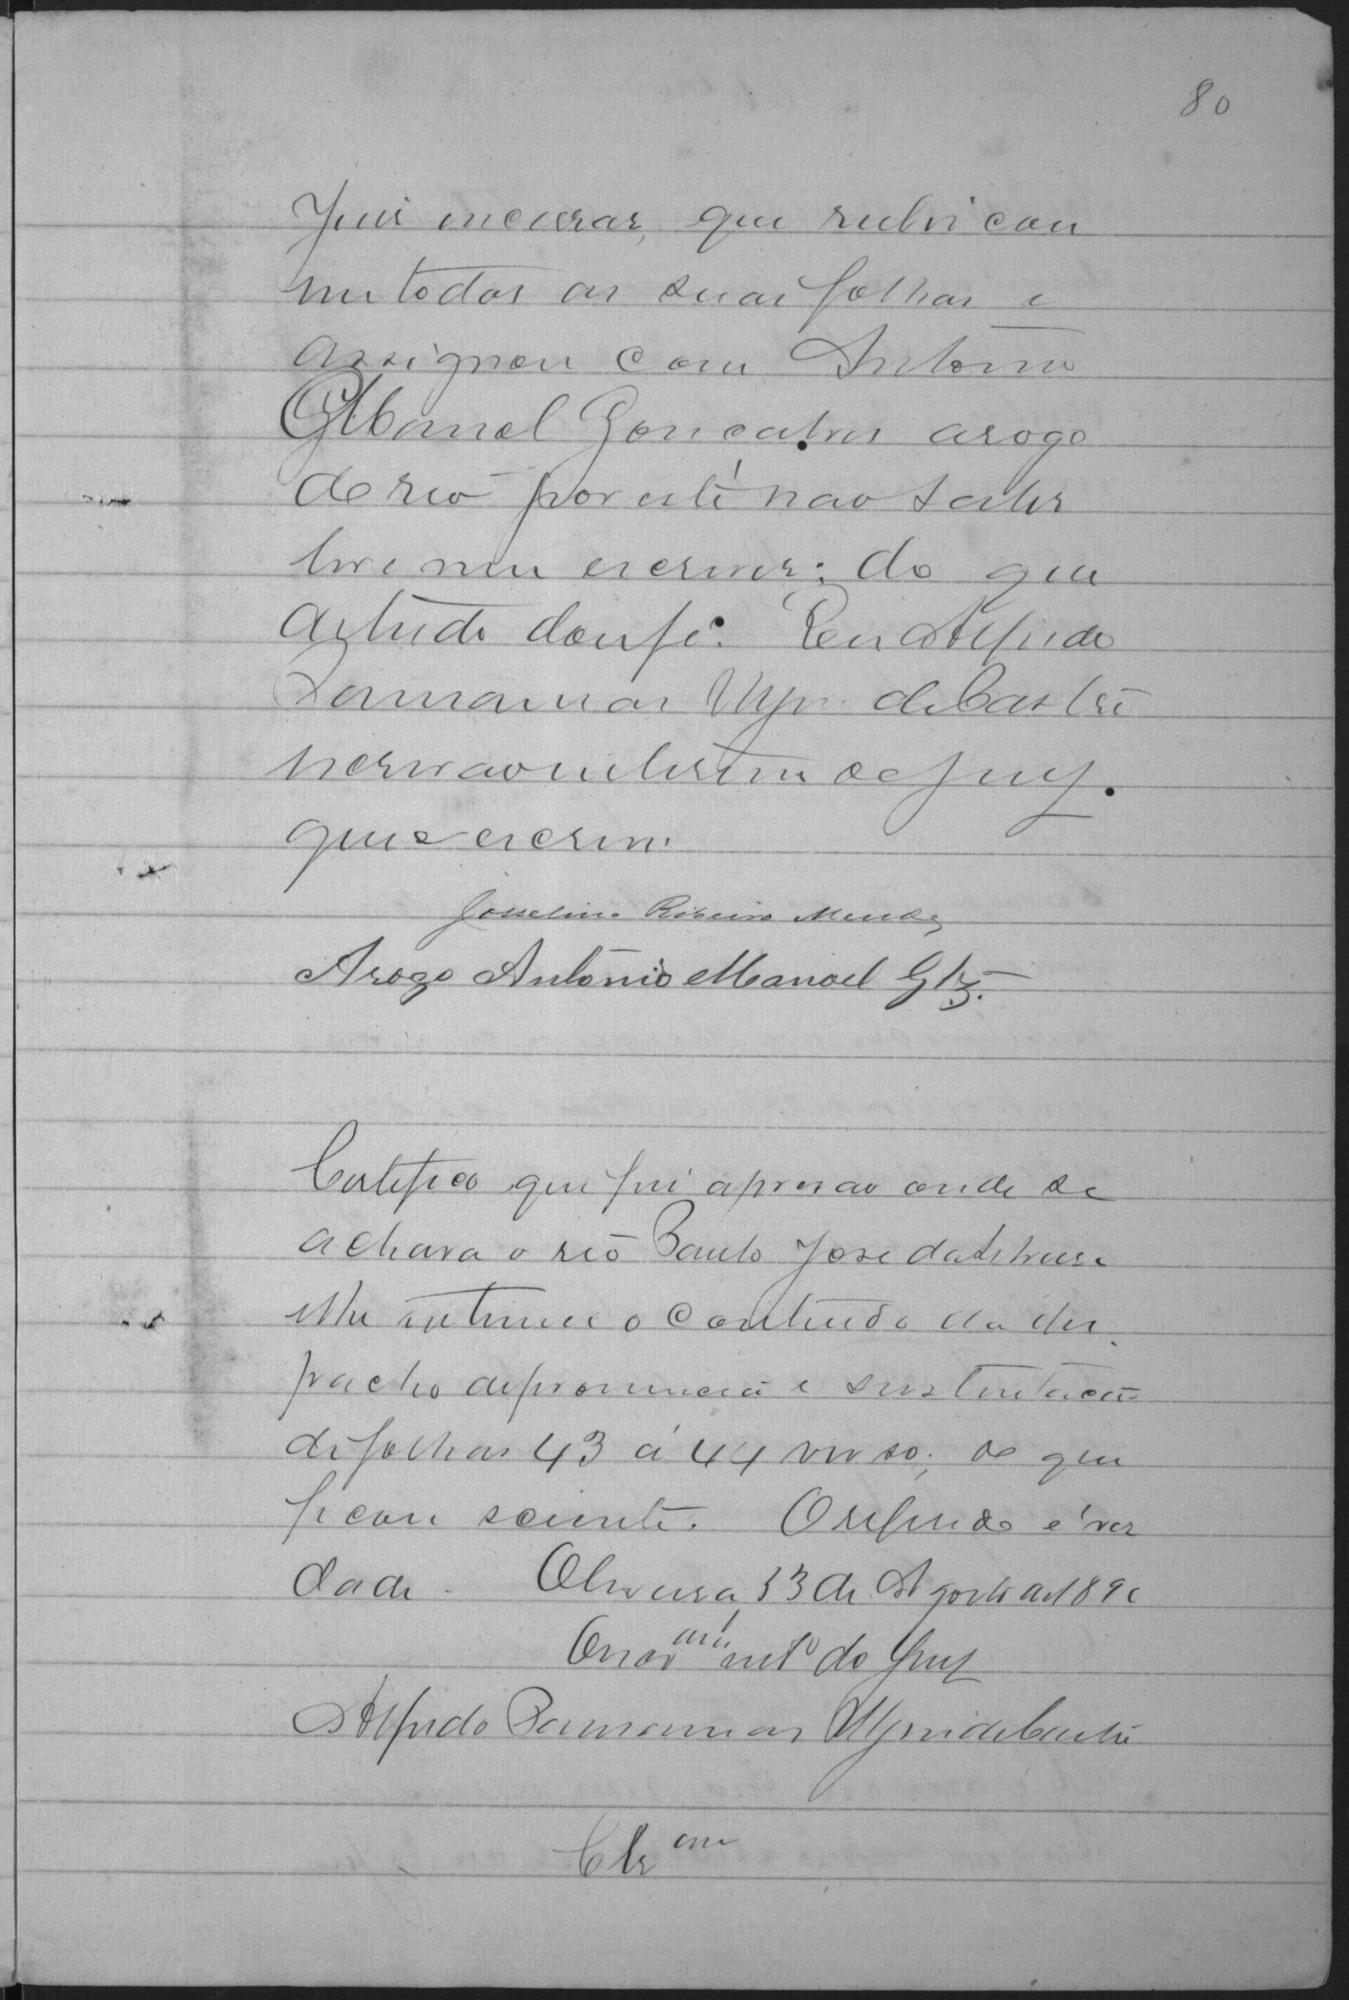 80
Juis encerrar, que rubricou
em todas as suas folhas e
assignou com Antonio
Manoel Gonçalves arogo
do reo por este não saber
ler e nem escrever; do que
de tudo dou fé. Eu Alfredo
de Castro
escrivão interino do Jury.
que o escrevi
Josselino Ribeiro Mendes
Arogo Antônio Manoel Glz.
Certifico que fui a prisão onde se
achava o reo Paulo José da
e lhe intimei o contheudo da des
pacho de pronuncia e sustentação
de folhas 43 á 44 verso; do que
ficou sciente. O referido é ver
dade. Oliveira, 13 de Agosto de 189
O escrivam intº do Jury
Alfredo de Castro
Clz am